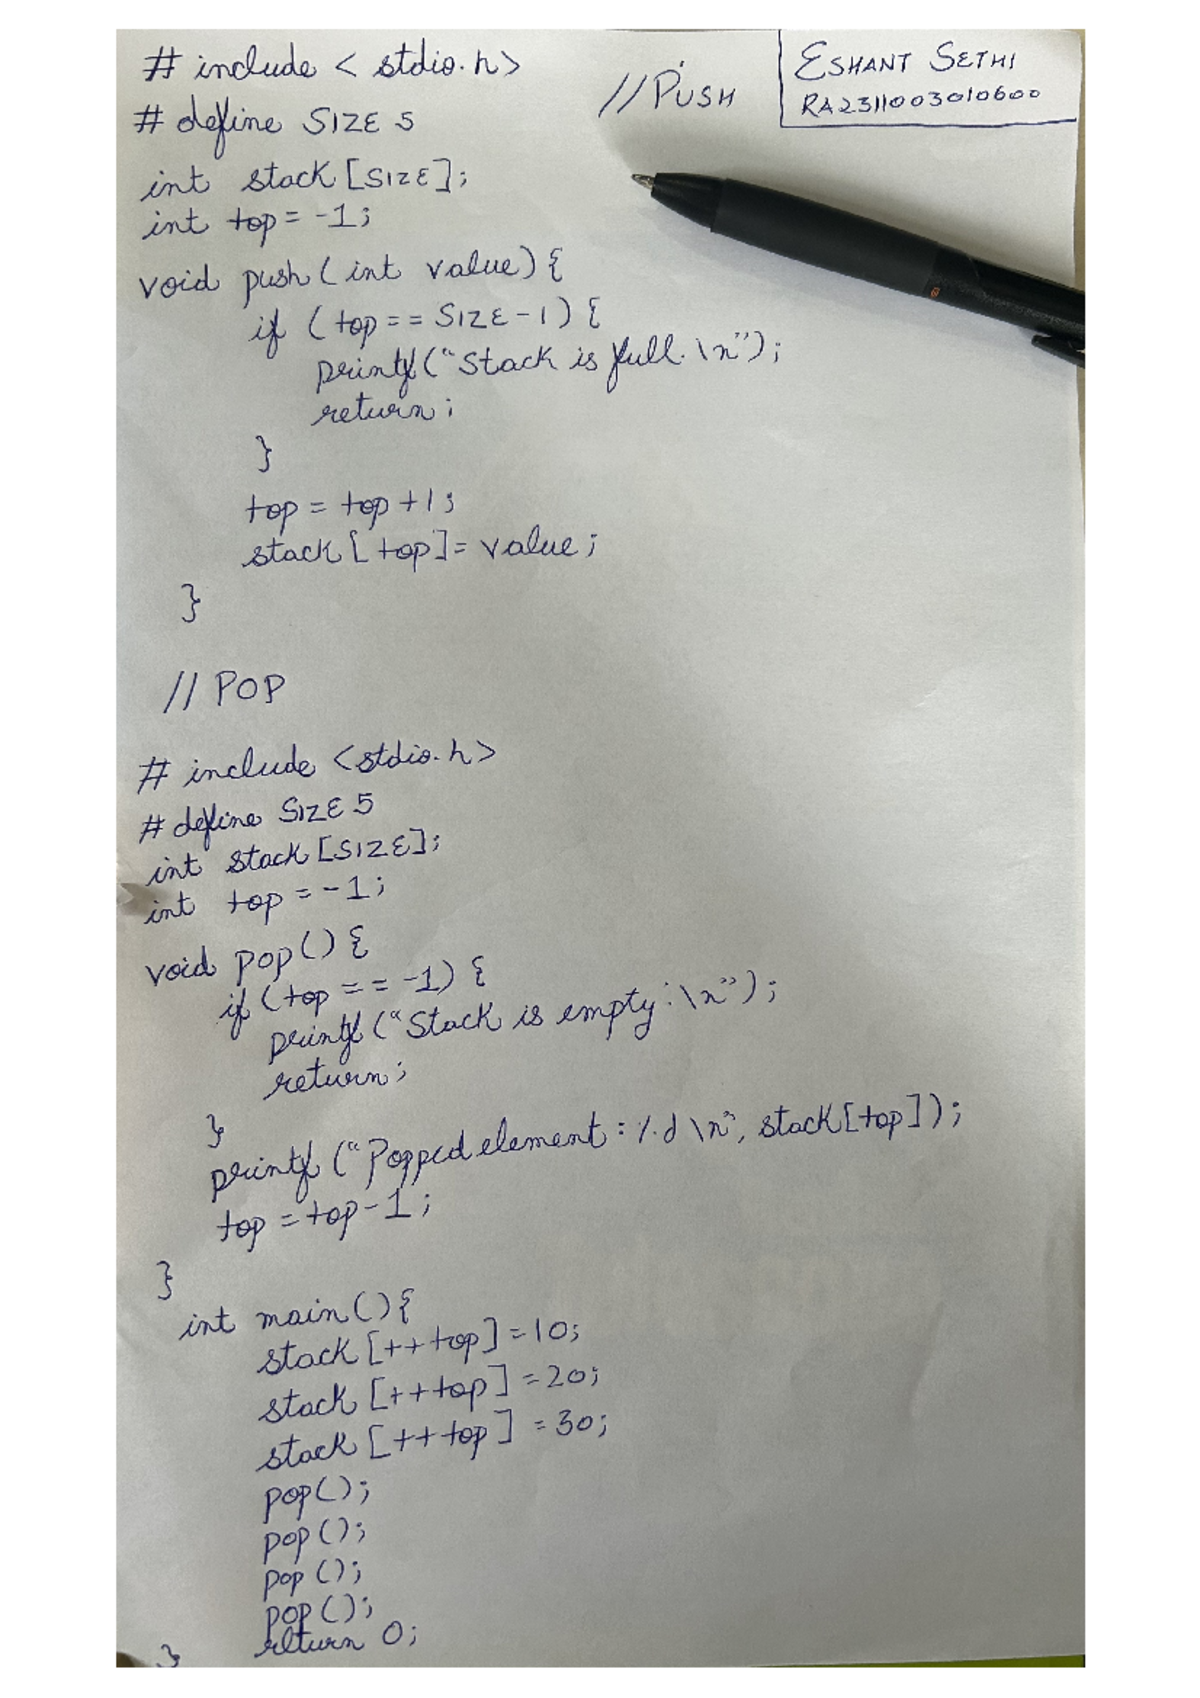 # include < stdio.h>
//PUSH
ESHANT SETHI
RA2311003010600
# define SIZE 5
int stack [SIZE];
int top = -1;
void push ( int value) {
if ( top == SIZE - 1 ) {
printf ( "Stack is full. \n");
return ;
}
top = top +1;
stack [ top] = value ;
}
// POP
# include <stdio.h>
# define SIZE 5
int stack [SIZE];
int top = -1;
void pop () {
if (top == -1) {
printf ("Stack is empty.\n") ;
return ;
}
printf ("Popped element : %d \n", stack [top]) ;
top = top - 1 ;
}
int main () {
stack [++top] = 10;
stack [++top] = 20;
stack [++top] = 30;
pop ();
pop ();
pop ();
pop ();
return 0;
}